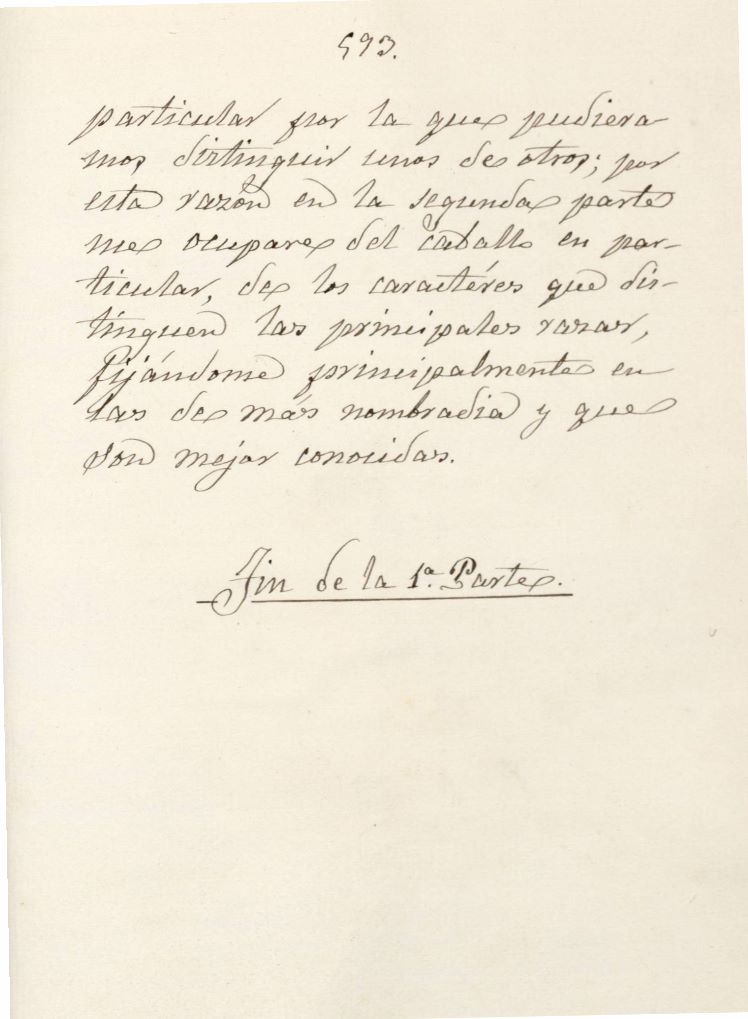 593.
particular por la que pudiera
mos distinguir unos de otros; por
esta razon en la segunda parte
me ocupare del caballo en par-
ticular, de los caractéres que dis-
tinguen las principales razas,
fijándome principalmente en
las de más nombradia y que
son mejor conocidas.
Fin de la 1ª. Parte.